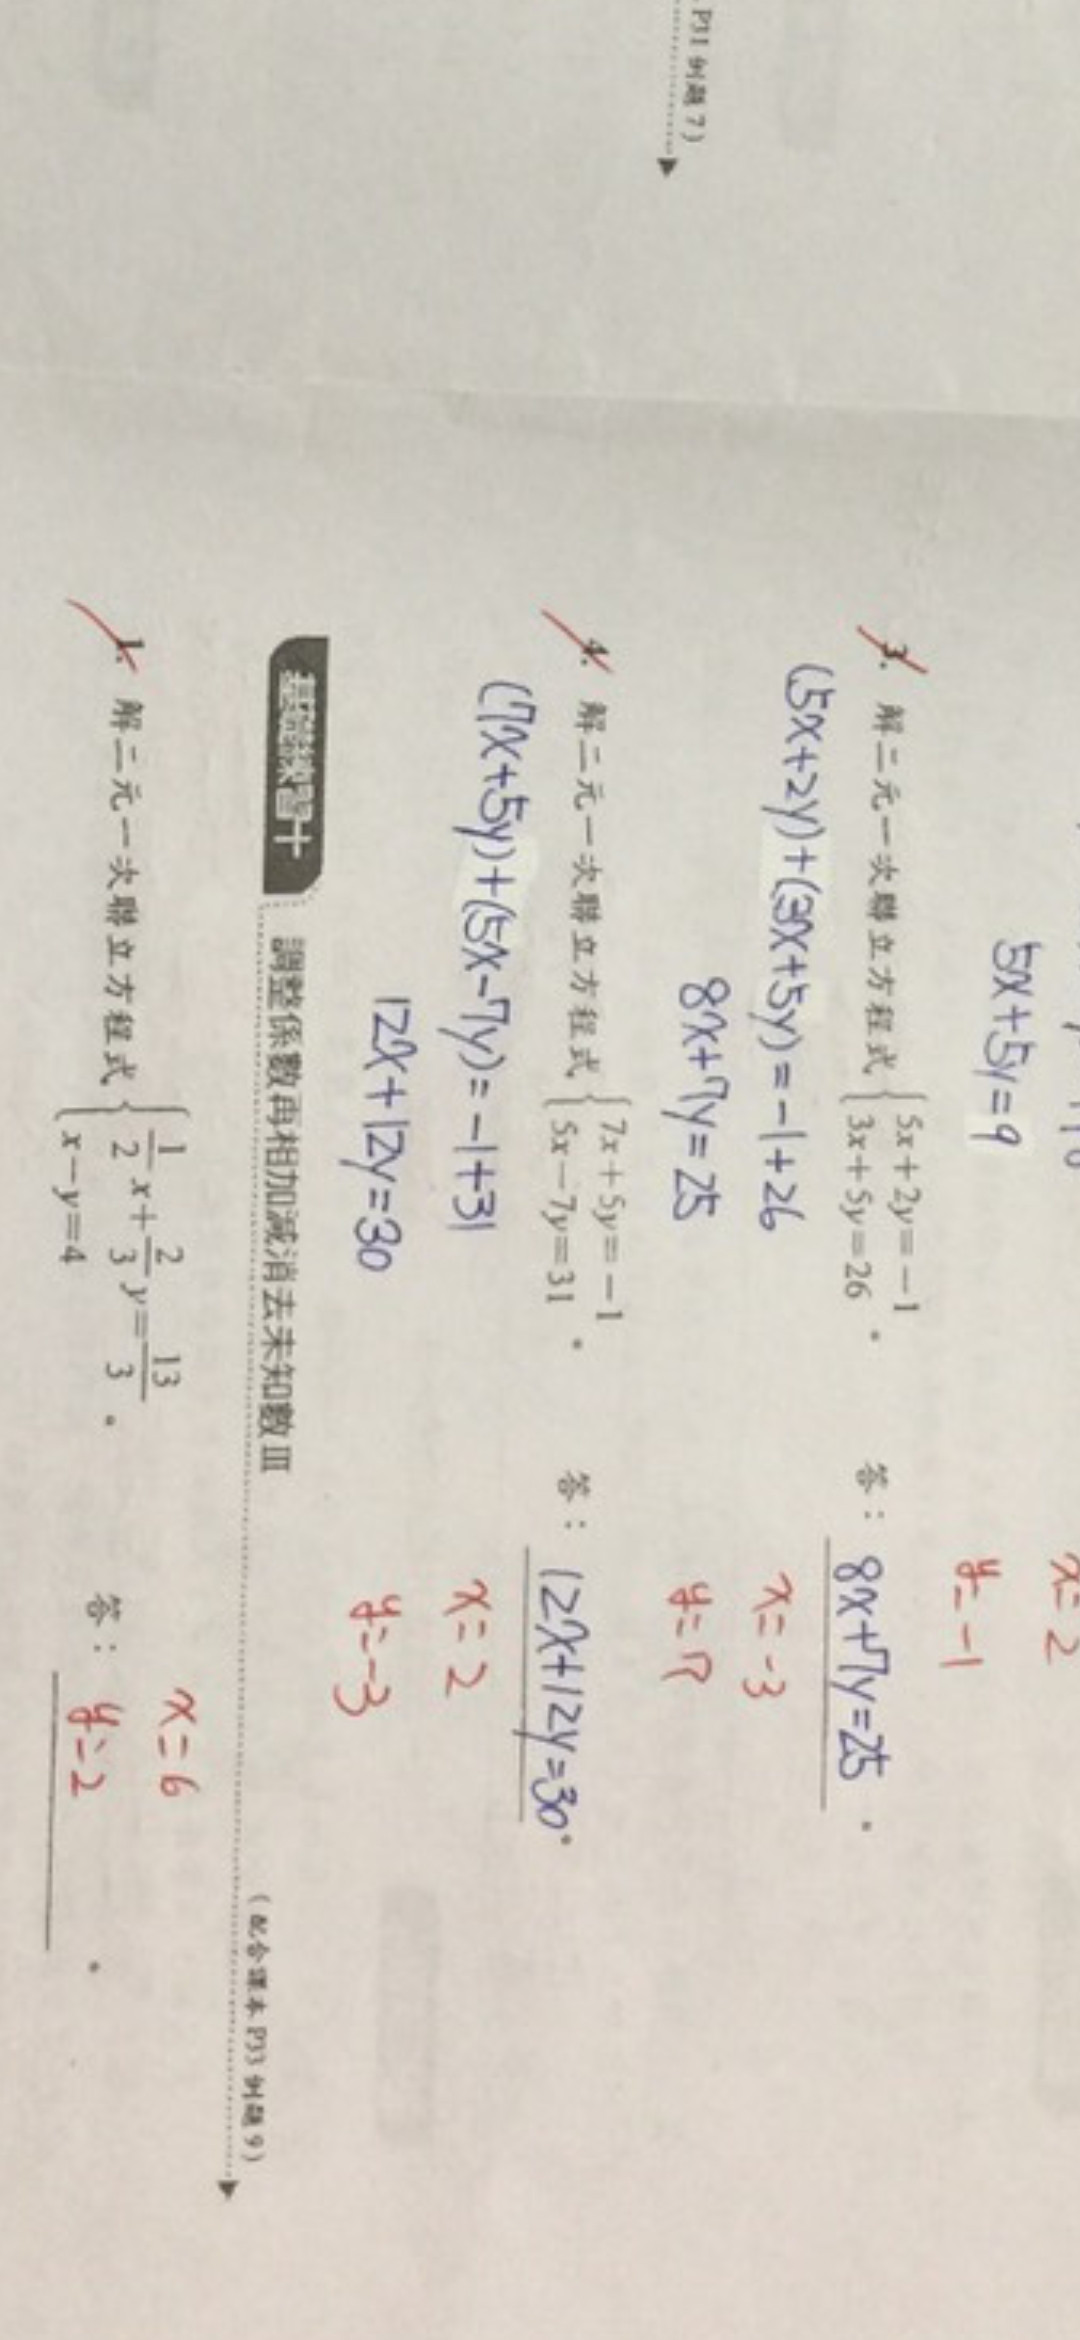 P31 例題7)
x=2
5x+5y=9
y=-1
3. 解二元一次聯立方程式 { 5x+2y=-1
3x+5y=26 。 答： 8x+7y=25 。
(5x+2y)+(3x+5y)=-1+26 x=-3
8x+7y=25 y=7
4. 解二元一次聯立方程式 { 7x+5y=-1
5x-7y=31 。 答： 12x+12y=30 。
(7x+5y)+(5x-7y)=-1+31 x=2
12x+12y=30 y=-3
基礎練習十 調整係數再相加減消去未知數Ⅲ (配合課本P33例題9)
1. 解二元一次聯立方程式 { 1/2 x+2/3 y=13/3
x-y=4 。 答： x=6
y=2 。